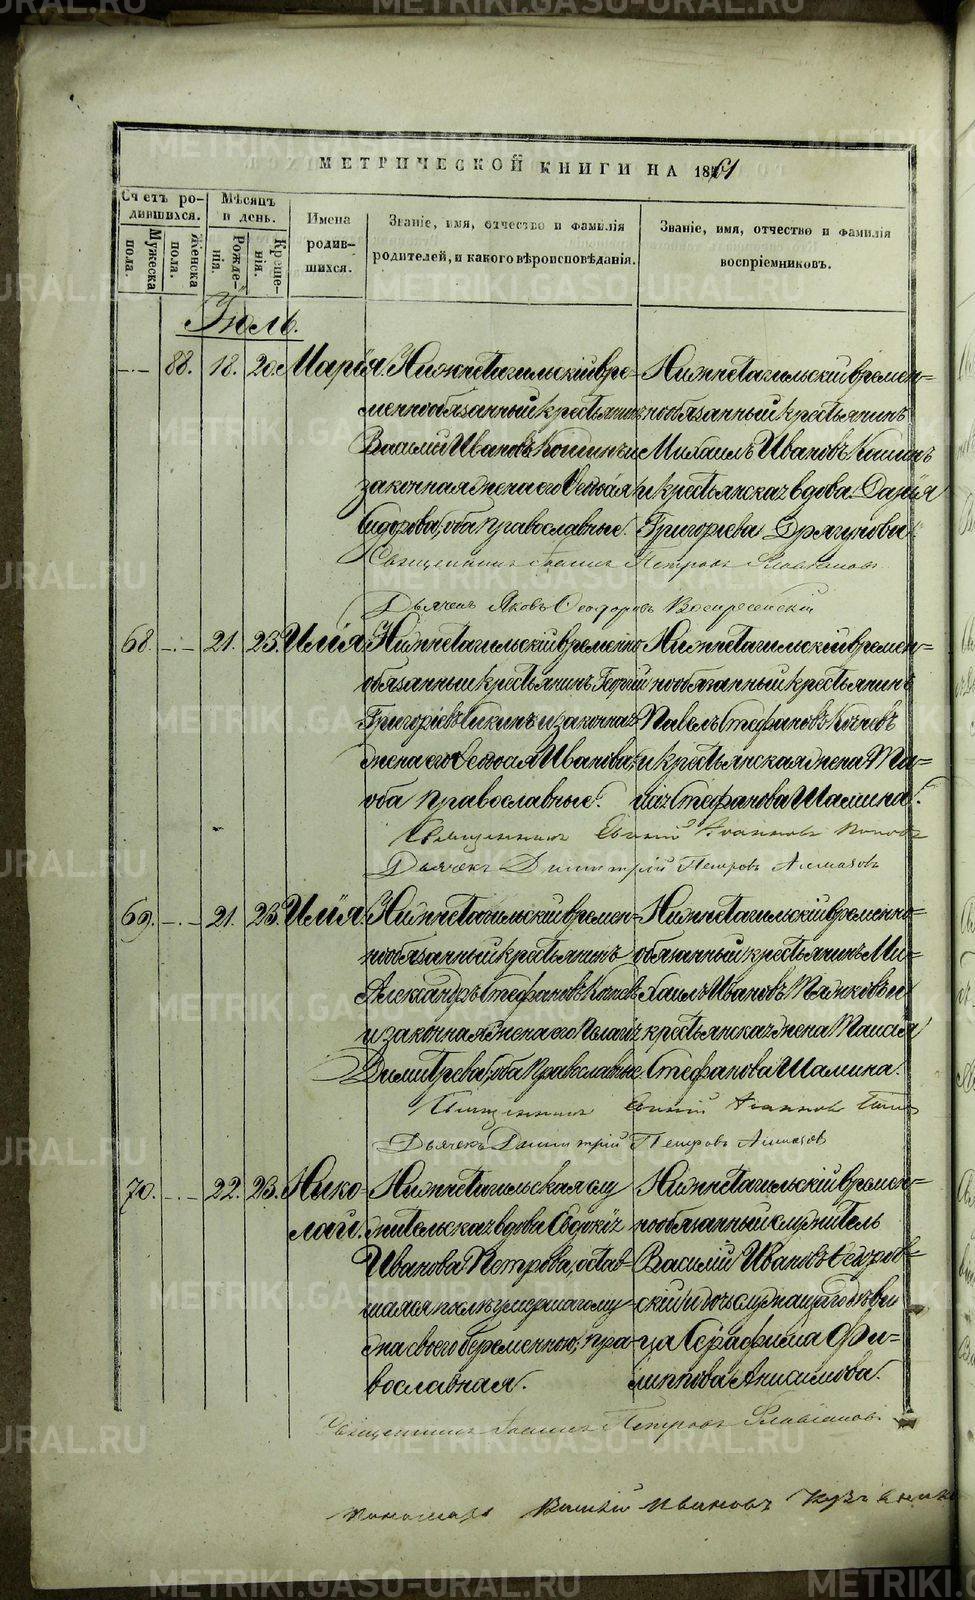 МЕТРИЧЕСКОЙ КНИГИ НА 1861
Счетъ родившихся.
Мужеска пола.
Женска пола.
Мѣсяцъ и день.
Рожденія.
Крещенія.
Имена родившихся.
Званіе, имя, отчество и фамилія
родителей, и какого вѣроисповѣданія.
Званіе, имя, отчество и фамилія
воспріемниковъ.
Іюль.
88. 18. 20. Марія. Нижнетагильскій вре-
меннообязанный крестьянинъ
Василій Ивановъ и
законная жена его
оба православные.
Нижнетагильскій времен-
нообязанный крестьянинъ
Михаилъ Ивановъ
и крестьянская вдова Дарія
Григорьева Дрягунова.
Священникъ Іоаннъ Петровъ Славниновъ
Дьячекъ Яковъ Ѳеодоровъ Воскресенскій
68. 21. 23. Илія. Нижнетагильскій временно
обязанный крестьянинъ Георгій
Григоріевъ и законная
жена его Ѳеодосія Иванова,
оба православные.
Нижнетагильскій времен-
нообязанный крестьянинъ
Павелъ Стефановъ
и крестьянская жена Таи-
сія Стефанова Шамина.
Священникъ Евгеній Іоанновъ Поповъ
Дьячекъ Димитрій Петровъ Алмазовъ
69. 21. 23. Илія. Нижнетагильскій времен-
нообязанный крестьянинъ
Александръ Стефановъ
и законная жена его Пелагія
Димитрева, оба православные.
Нижнетагильскій временно-
обязанный крестьянинъ Ми-
хаилъ Ивановъ Паньковъ и
крестьянская жена Таисія
Стефанова Шамина.
Священникъ Евгеній Іоанновъ
Дьячекъ Димитрій Петровъ Алмазовъ
70. 22. 23. Нико-
лай.
Нижнетагильская слу
жительская вдова Евдокія
Иванова Петрова, остав-
шаяся послѣ умершаго му-
жа своего беременною, пра-
вославная.
Нижнетагильскій времен-
нообязанный служитель
Василій Ивановъ
и дочь служащаго дѣви
ца Серафима Фи-
липпова Анисимова.
Священникъ Іоаннъ Петровъ Славниновъ
Пономарь Василій Ивановъ
METRIKI.GASO-URAL.RU